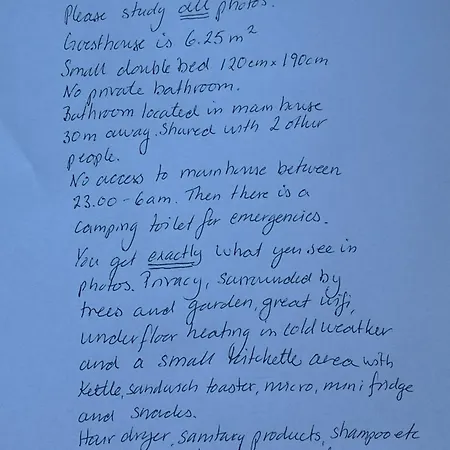 Please study all photos.
Guesthouse is 6.25 m²
Small double bed 120cm x 190cm
No private bathroom.
Bathroom located in main house
30m away. Shared with 2 other
people.
No access to mainhouse between
23.00-6am. Then there is a
camping toilet for emergencies.
You get exactly what you see in
photos. Privacy, surrounded by
trees and garden, great wifi,
underfloor heating in cold weather
and a small kitchette area with
kettle, sandwich toaster, micro, mini fridge
and snacks.
Hair dryer, sanitary products, shampoo etc